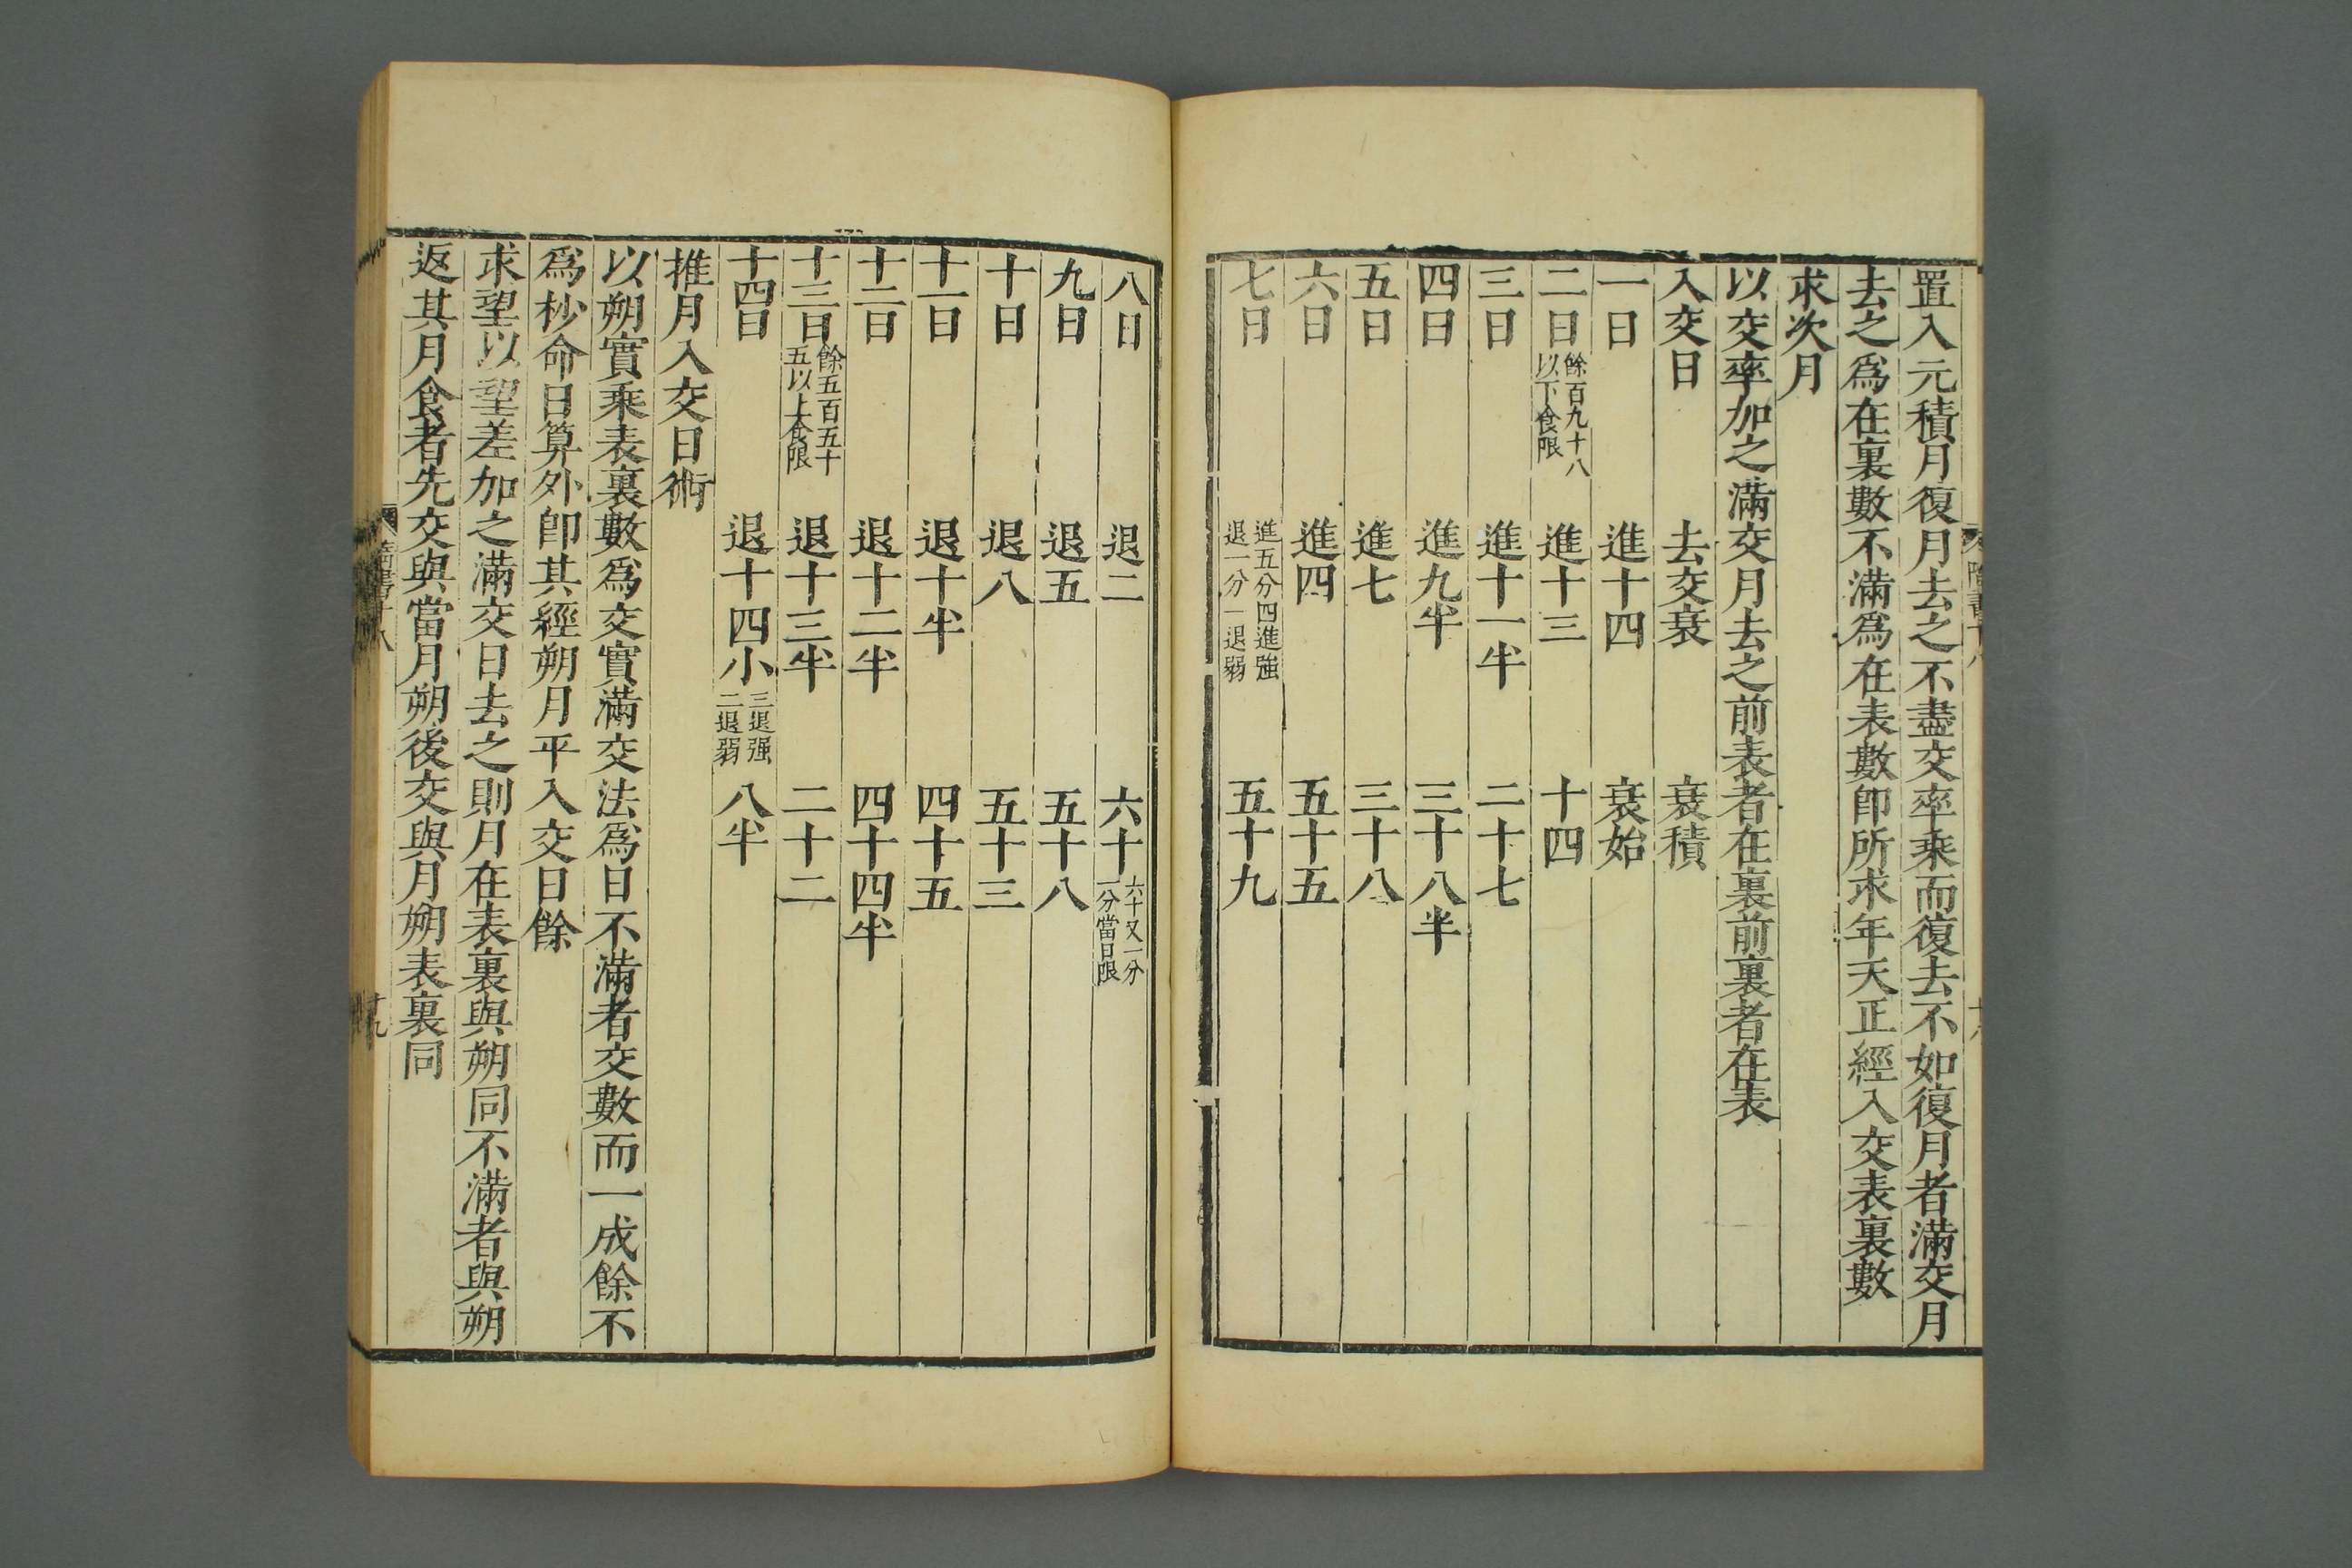 置入元積月復月去之不盡交率乘而復去不如復月者滿交月
去之爲在裏數不滿爲在表數卽所求年天正經入交表裏數
求次月
以交率加之滿交月去之前表者在裏前裏者在表
入交日 去交衰 衰積
一日 進十四 衰始
二日 餘百九十八以下食限 進十三 十四
三日 進十一半 二十七
四日 進九半 三十八半
五日 進七 三十八
六日 進四 五十五
七日 進五分四進強退一分一退弱 五十九
八日 退二 六十 六十又一分一分當日限
九日 退五 五十八
十日 退八 五十三
十一日 退十半 四十五
十二日 退十二半 四十四半
十三日 餘五百五十五以上食限 退十三半 二十二
十四日 退十四小 三退强二退弱 八半
推月入交日術
以朔實乘表裏數爲交實滿交法爲日不滿者交數而一成餘不
爲杪命日算外卽其經朔月平入交日餘
求望以望差加之滿交日去之則月在表裏與朔同不滿者與朔
返其月食者先交與當月朔後交與月朔表裏同
書十八
十九